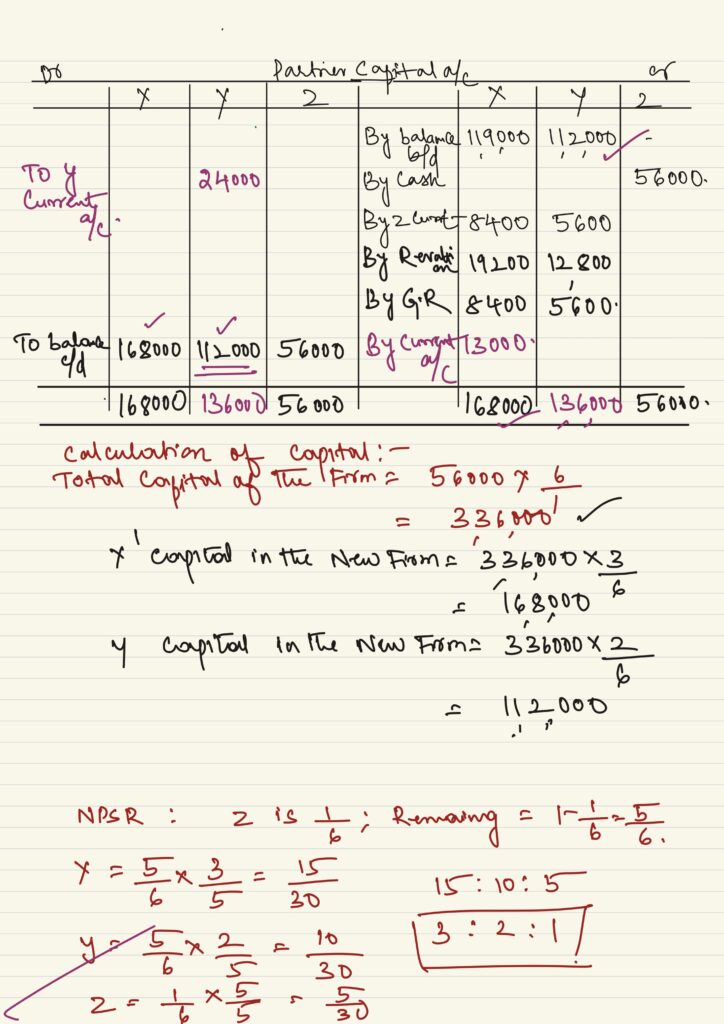 Dr Partner Capital a/c cr
X Y Z X Y Z
By balance b/d 119000 112000 -
To Y Current a/c. 24000 By Cash 56000.
By Z Current 8400 5600
By Revaluation 19200 12800
By G.R 8400 5600.
To balance c/d 168000 112000 56000 By Current a/c 13000.
168000 136000 56000 168000 136000 56000.
Calculation of Capital:-
Total Capital of The Firm = 56000 × 6/1
= 336,000
X' Capital in the New Firm = 336000 × 3/6
= 168000
Y Capital in the New Firm = 336000 × 2/6
= 112000
NPSR : Z is 1/6 ; Remaining = 1-1/6 = 5/6.
X = 5/6 × 3/5 = 15/30
15 : 10 : 5
Y = 5/6 × 2/5 = 10/30
3 : 2 : 1
Z = 1/6 × 5/5 = 5/30